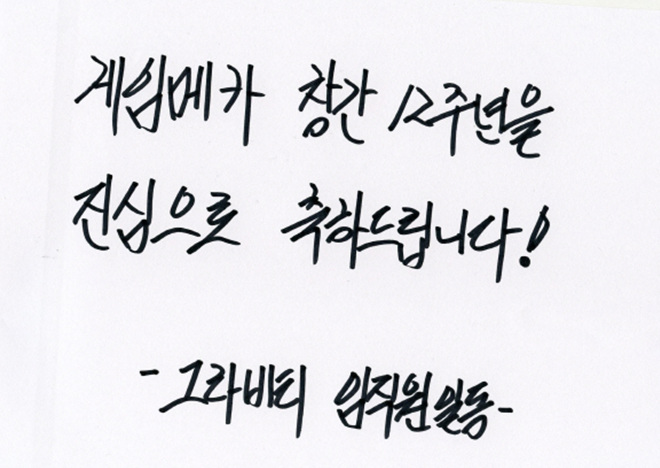 게임메카 창간 12주년을
진심으로 축하드립니다!
- 그라비티 임직원일동-